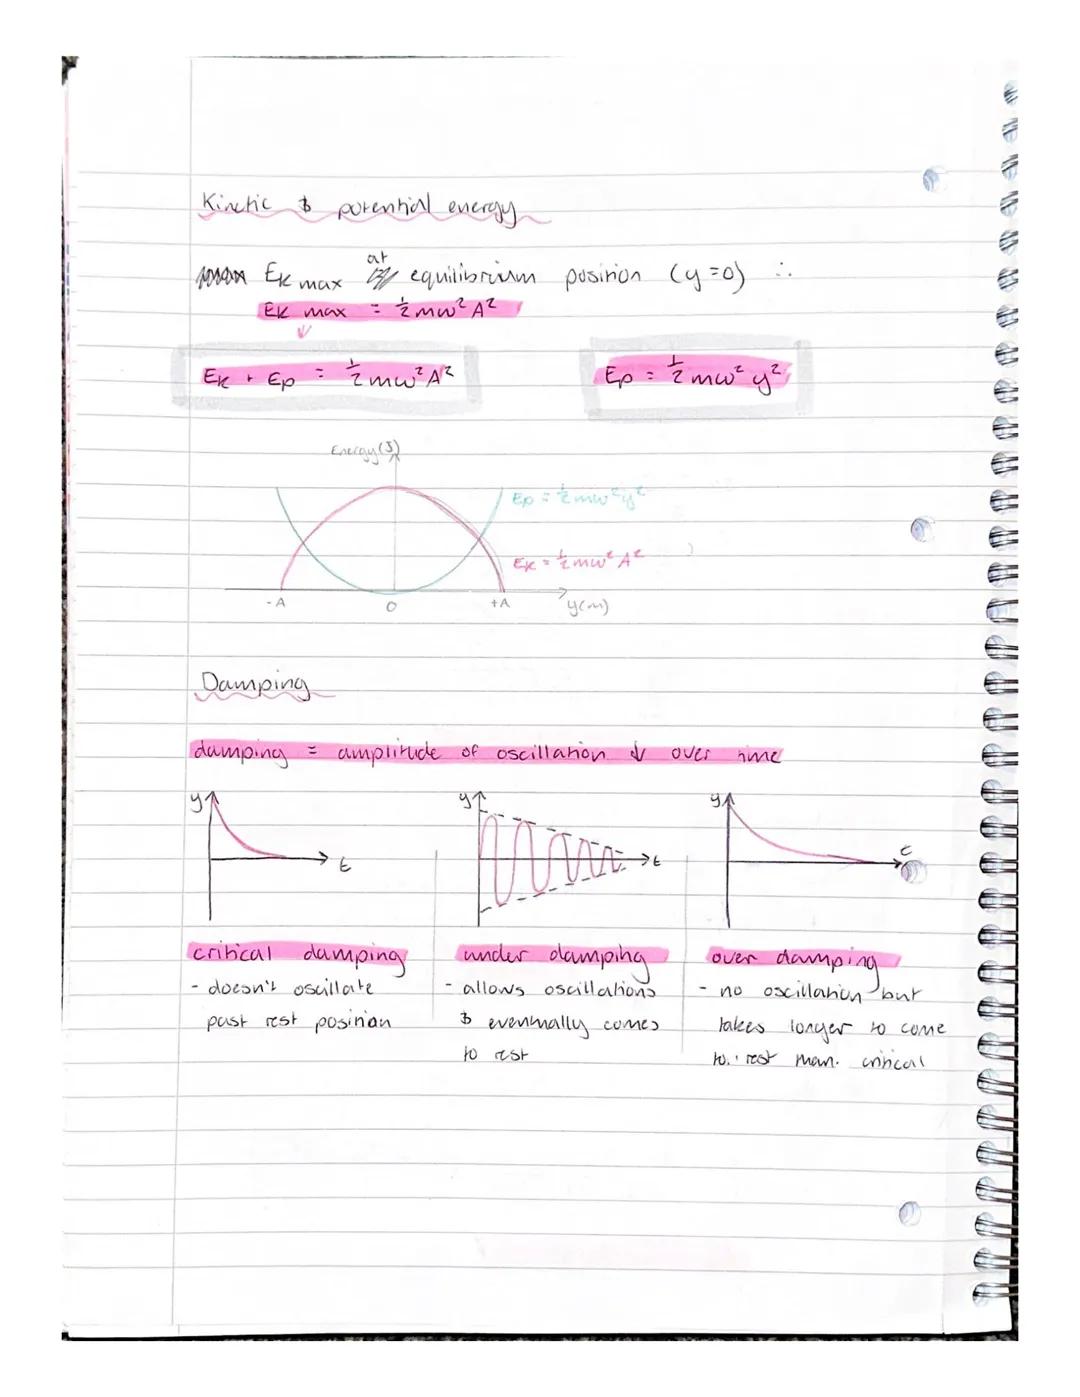 Kinetic & potential energy
Ek max at equilibrium position (y=0) ∴
Ek max = ½mω²A²
↓
Ek + Ep = ½mω²A²
Ep = ½mω²y²
Energy(J)
Ep = ½mω²y²
Ek = ½mω²A²
-A 0 +A y(m)
Damping
damping = amplitude of oscillation ↓ over time
y y y
t t t
critical damping
- doesn't oscillate
past rest position
under damping
- allows oscillations
& eventually comes
to rest
over damping
- no oscillation but
takes longer to come
to rest than critical